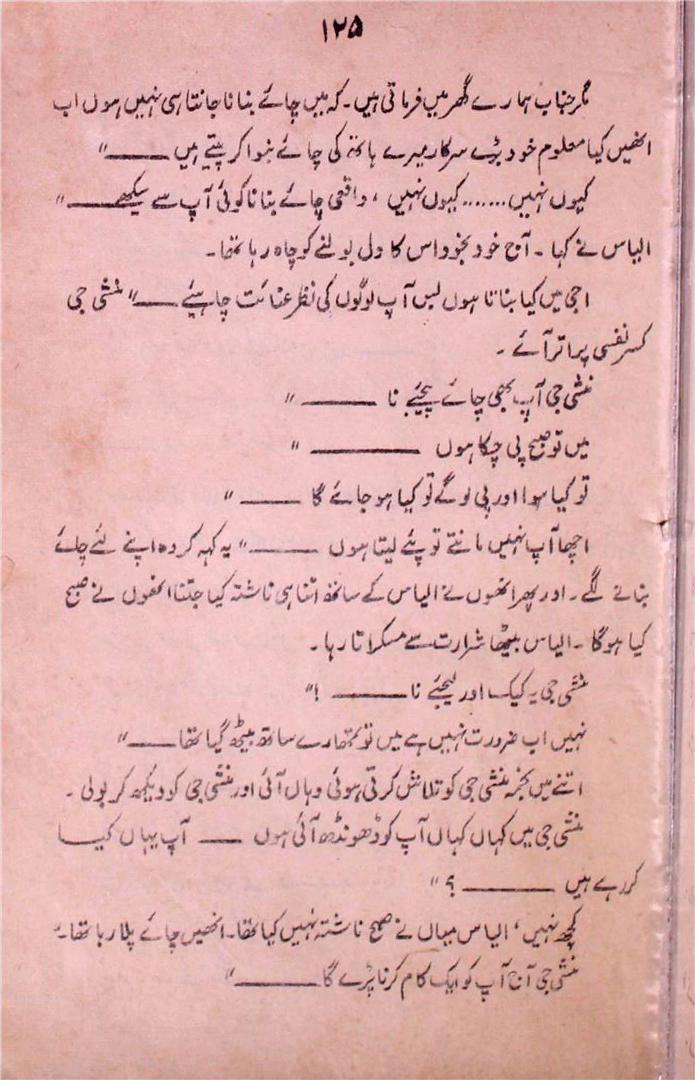 ۱۲۵
مگر جناب ہمارے گھر میں فرماتی ہیں۔ کہ میں چائے بنانا جانتا سی نہیں ہوں اب
انھیں کیا معلوم خود بڑے سرکار میرے ہاتھ کی چائے بنوا کر پیتے ہیں ـــــــ"
کیوں نہیں.......کیوں نہیں ، واقعی چائے بنانا کوئی آپ سے سیکھے ـــــــ"
الیاس نے کہا ۔ آج خود بخود اس کا دل بولنے کو چاہ رہا تھا۔
اجی میں کیا بناتا ہوں بس آپ لوگوں کی نظر عنائت چاہیئے ـــــ" منشی جی
کسر نفسی پر اتر آئے ۔
منشی جی آپ بھی چائے پیجئے نا ـــــــــ "
میں تو صبح پی چکا ہوں ـــــــــــــ "
تو کیا ہوا اور پی لو گے تو کیا ہو جائے گا ـــــــ "
اچھا آپ نہیں مانتے تو پئے لیتا ہوں ـــــــــ" یہ کہہ کر وہ اپنے لئے چائے
بنانے لگے ۔ اور پھر انھوں نے الیاس کے ساتھ اتنا ہی ناشتہ کیا جتنا انھوں نے صبح
کیا ہوگا ۔ الیاس بیٹھا شرارت سے مسکراتا رہا ۔
منشی جی یہ کیک اور لیجئے نا ـــــــــ !"
نہیں اب ضرورت نہیں ہے میں تو تمھارے ساتھ بیٹھ گیا تھا ــــــ"
اتنے میں نجمہ منشی جی کو تلاش کرتی ہوئی وہاں آئی اور منشی جی کو دیکھ کر بولی ۔
منشی جی میں کہاں کہاں آپ کو ڈھونڈھ آئی ہوں ـــــ آپ یہاں کیا
کر رہے ہیں ـــــــــــ ؟ "
کچھ نہیں ، الیاس میاں نے صبح ناشتہ نہیں کیا تھا۔ انھیں چائے پلا رہا تھا۔
منشی جی آج آپ کو ایک کام کرنا پڑے گا ــــــــــ"